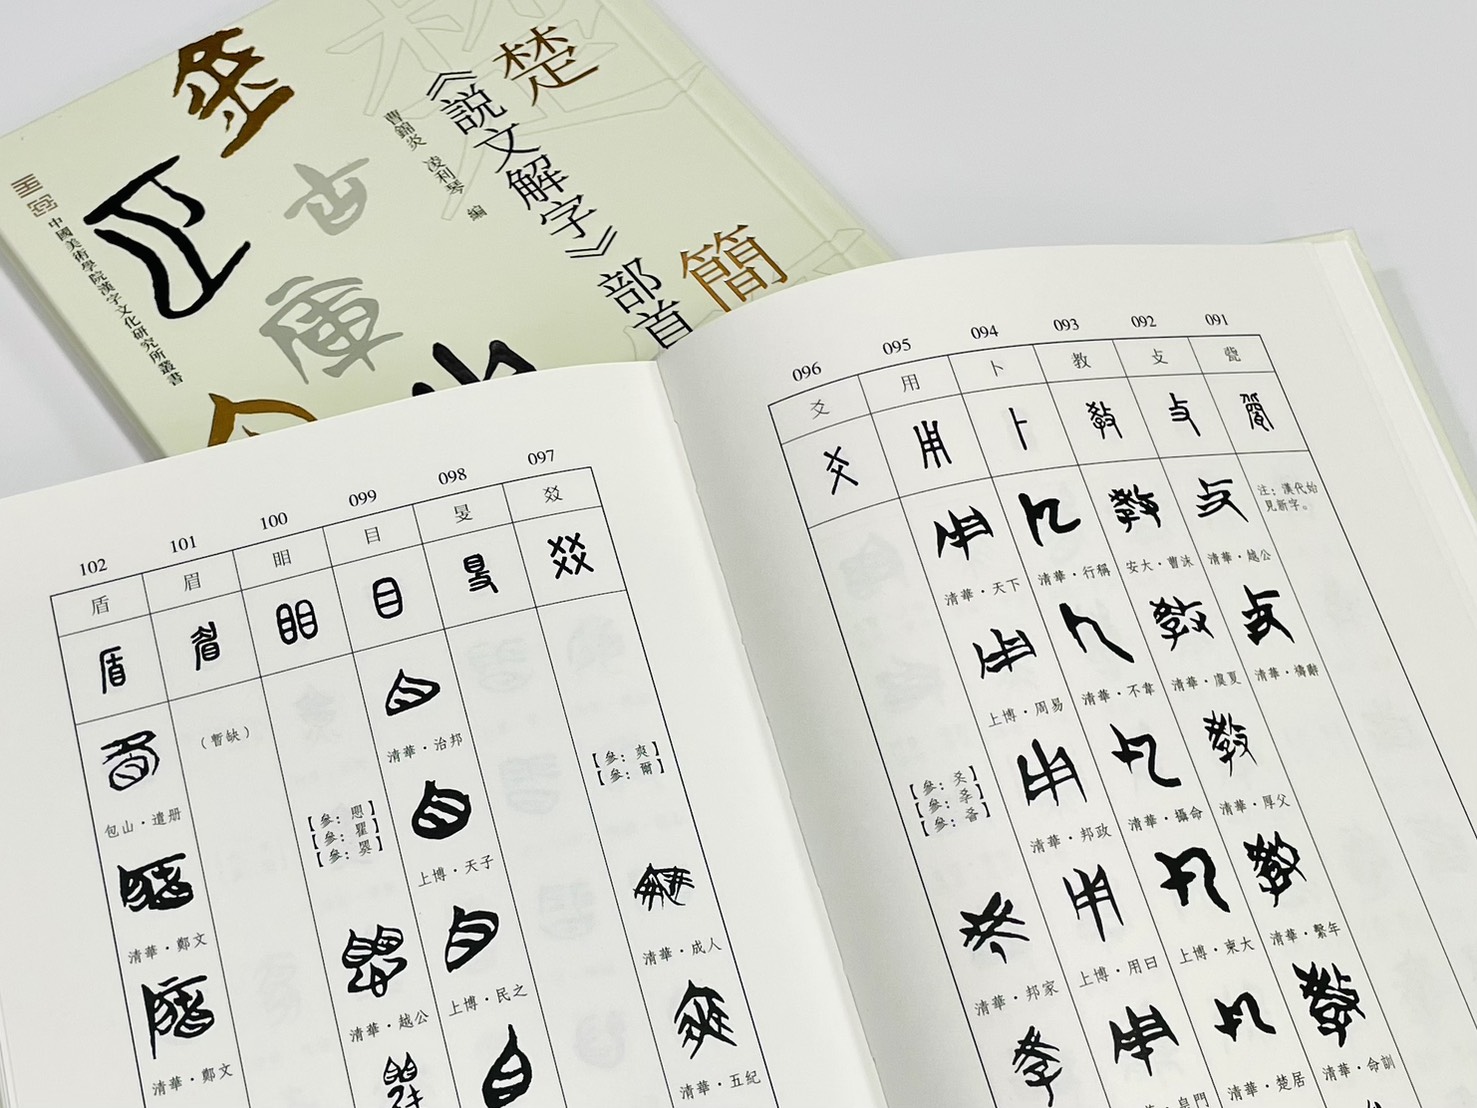 楚
簡
《説文解字》部首
曹錦炎 凌利琴 編
中國美術學院漢字文化研究所叢書
091
092
093
094
095
096
㼱
攴
教
卜
用
爻
注：漢代始
見新字。
清華·越公
清華·禱辭
安大·曹沬
清華·虞夏
清華·厚父
清華·繫年
清華·命訓
清華·行稱
清華·不韋
清華·攝命
上博·柬大
清華·楚居
清華·天下
上博·周易
清華·邦政
上博·用曰
清華·邦家
097
098
099
100
101
102
㸚
𥄎
目
䀠
眉
盾
【參：爽】
【參：爾】
清華·成人
清華·五紀
清華·治邦
上博·天子
上博·民之
清華·越公
（暫缺）
包山·遣册
清華·鄭文
清華·鄭文